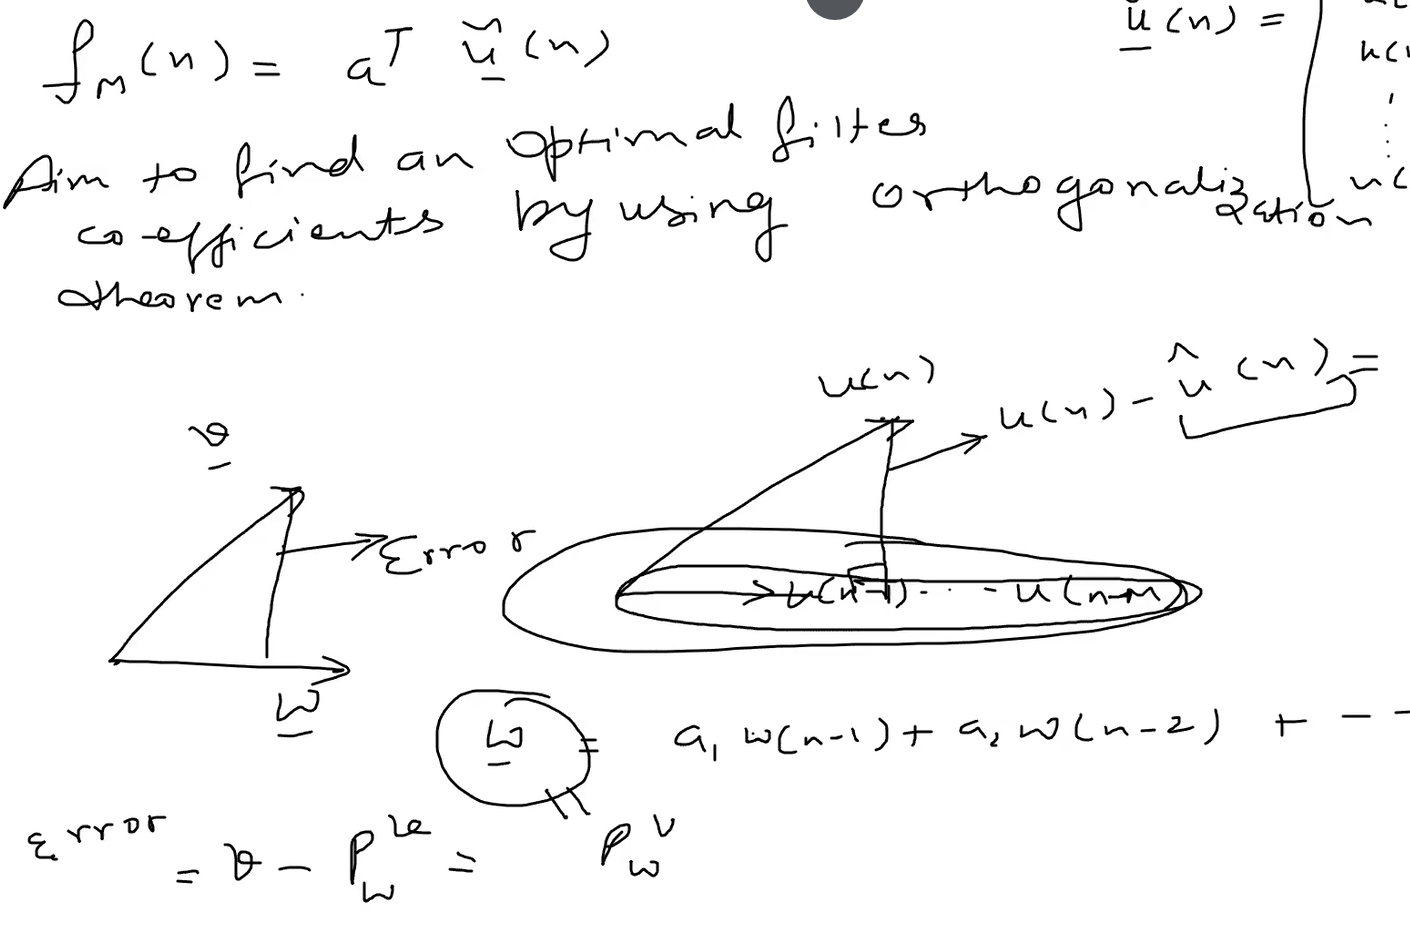 f_M(n) = a^T ũ(n)
ũ(n) =
Aim to find an optimal filter
co-efficients by using orthogonalization
theorem.
u(n)
u(n) - û(n) =
v
Error
u(n-1) . . . - u(n-M)
w
w = a₁ w(n-1) + a₂ w(n-2) + - -
P_w^v
Error = v - P_w^v =